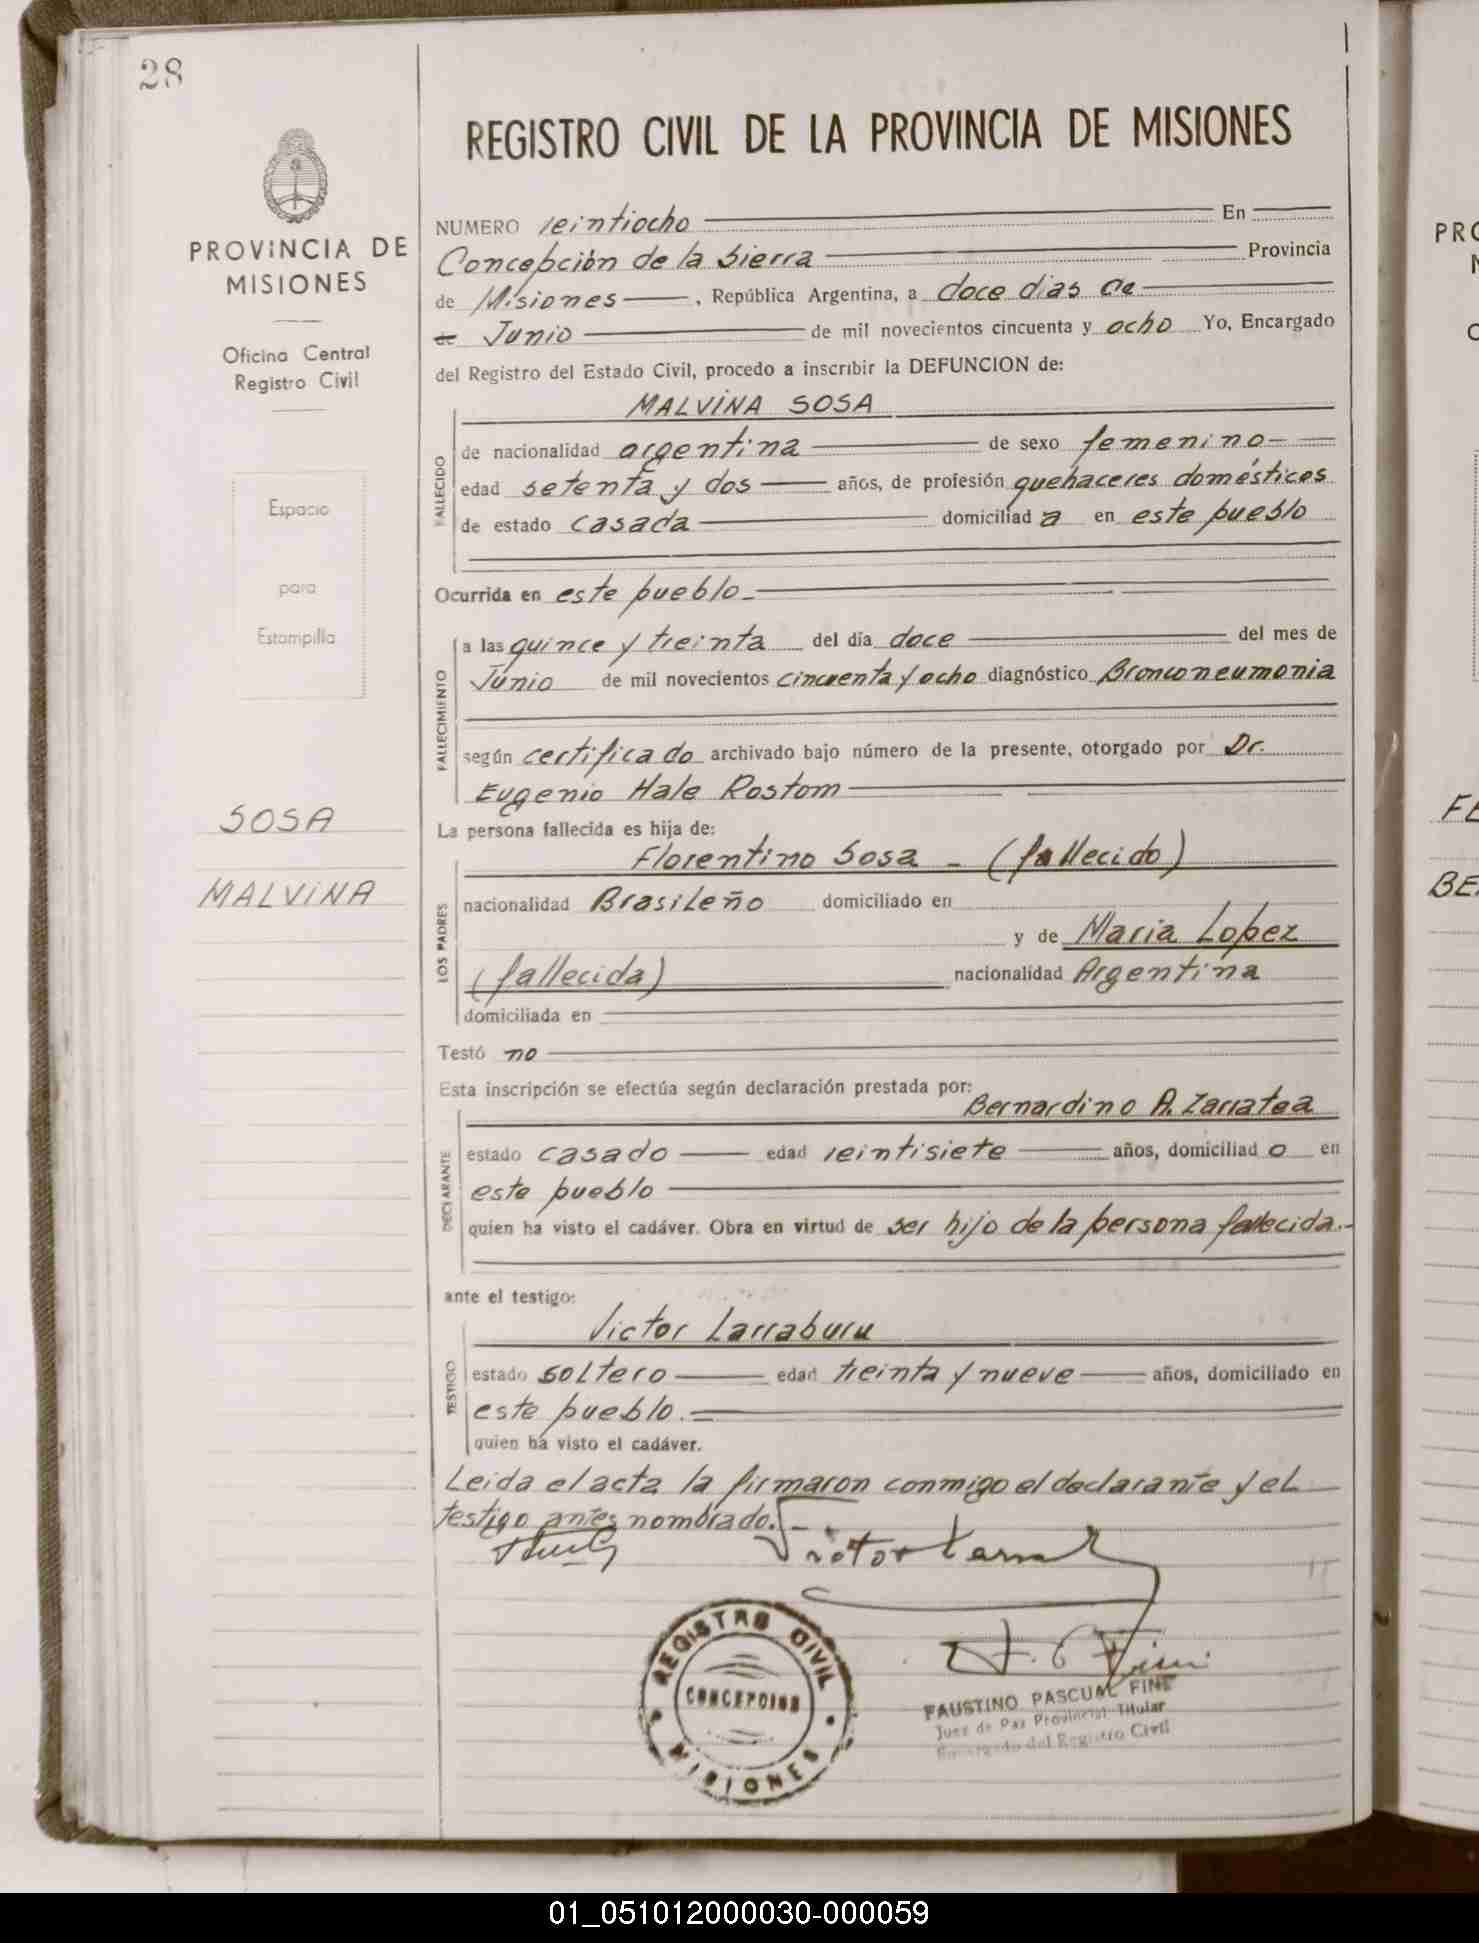 28
PROVINCIA DE
MISIONES
Oficina Central
Registro Civil
Espacio
para
Estampilla
SOSA
MALVINA
REGISTRO CIVIL DE LA PROVINCIA DE MISIONES
NUMERO veintiocho En
Concepción de la Sierra Provincia
de Misiones, República Argentina, a doce dias de
de Junio de mil novecientos cincuenta y ocho Yo, Encargado
del Registro del Estado Civil, procedo a inscribir la DEFUNCION de:
MALVINA SOSA
FALLECIDO
de nacionalidad argentina de sexo femenino
edad setenta y dos años, de profesión quehaceres domésticos
de estado casada domiciliad a en este pueblo
Ocurrida en este pueblo
FALLECIMIENTO
a las quince y treinta del día doce del mes de
Junio de mil novecientos cincuenta y ocho diagnóstico Bronconeumonia
según certificado archivado bajo número de la presente, otorgado por Dr.
Eugenio Hale Rostom
La persona fallecida es hija de:
LOS PADRES
Florentino Sosa - (fallecido)
nacionalidad Brasileño domiciliado en
y de Maria Lopez
(fallecida) nacionalidad Argentina
domiciliada en
Testó no
Esta inscripción se efectúa según declaración prestada por:
DECLARANTE
Bernardino A. Zarratea
estado casado edad veintisiete años, domiciliad o en
este pueblo
quien ha visto el cadáver. Obra en virtud de ser hijo de la persona fallecida.-
ante el testigo:
TESTIGO
Victor Larraburu
estado soltero edad treinta y nueve años, domiciliado en
este pueblo.
quien ha visto el cadáver.
Leida el acta la firmaron conmigo el declarante y el
testigo antes nombrado.
Victor
REGISTRO CIVIL
CONCEPCION
MISIONES
FAUSTINO PASCUAL FINE
Juez de Paz Provincial Titular
Encargado del Registro Civil
PRO
FE
BE
01_051012000030-000059